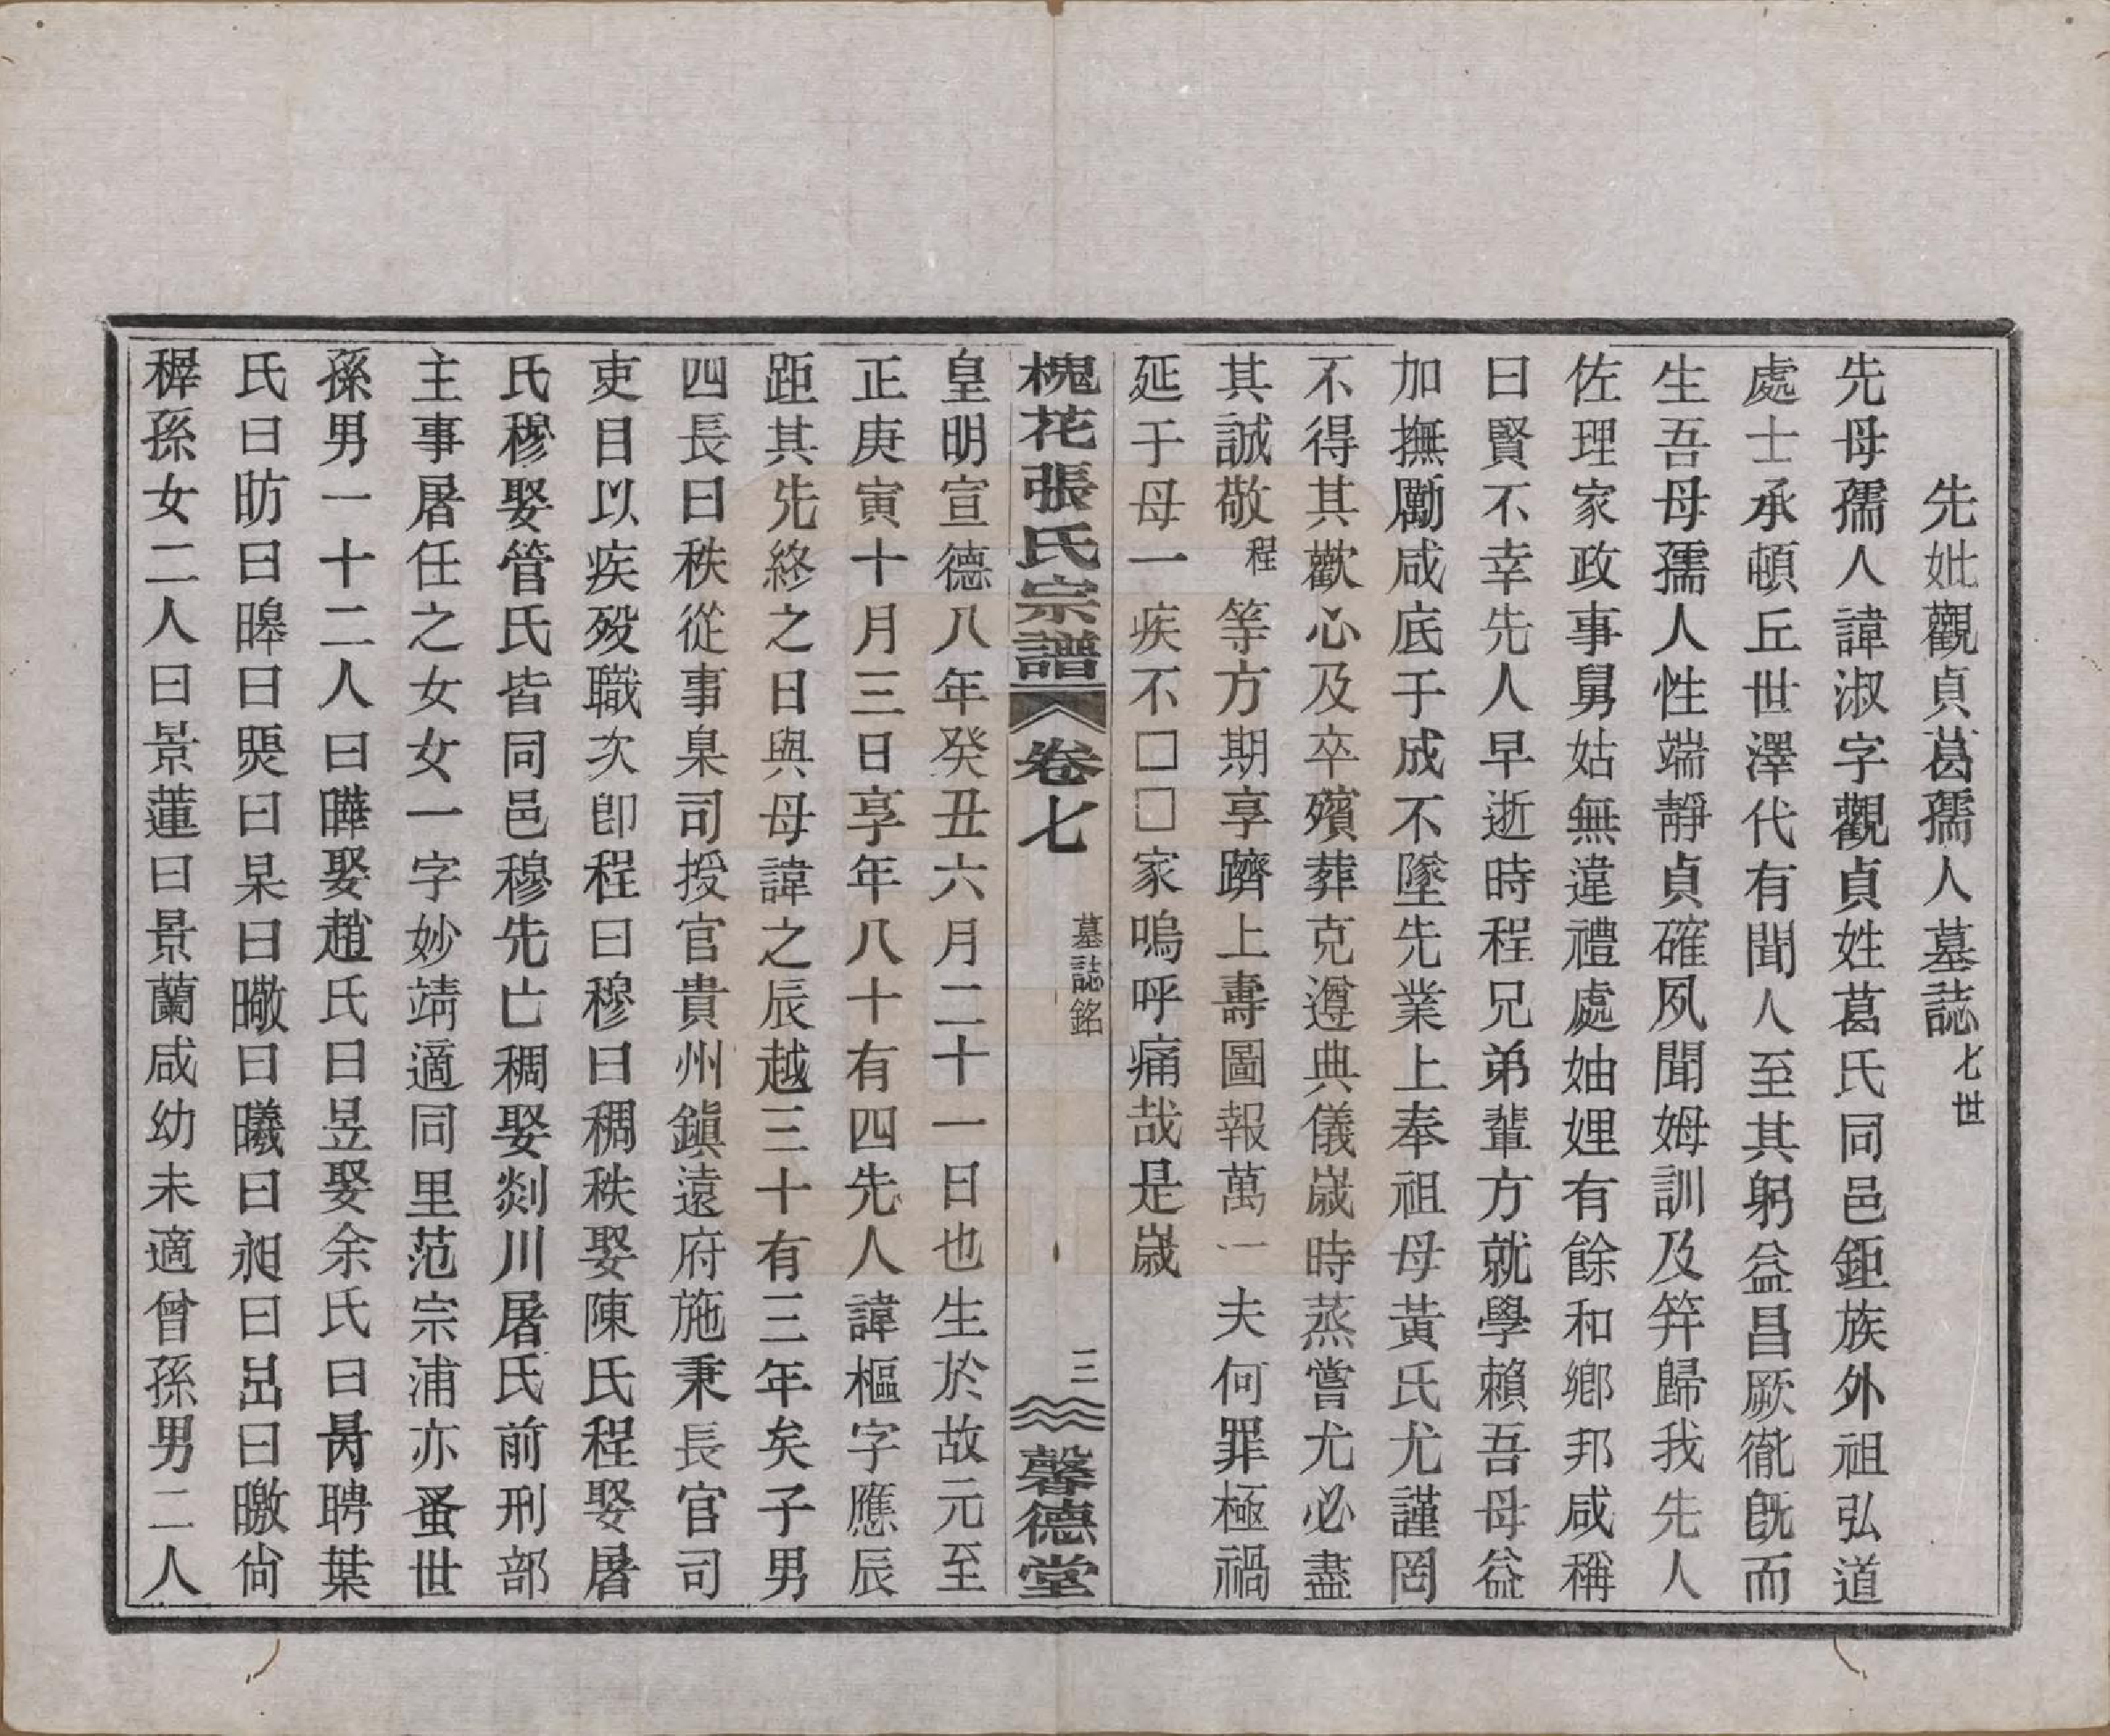 先妣觀貞葛孺人墓誌七世
先母孺人諱淑字觀貞姓葛氏同邑鉅族外祖弘道
處士承頓丘世澤代有聞人至其躬益昌厥徹旣而
生吾母孺人性端靜貞確夙聞姆訓及笄歸我先人
佐理家政事舅姑無違禮處妯娌有餘和鄉邦咸稱
曰賢不幸先人早逝時程兄弟輩方就學賴吾母益
加撫勵咸底于成不墜先業上奉祖母黃氏尤謹罔
不得其歡心及卒殯葬克遵典儀歲時蒸嘗尤必盡
其誠敬程等方期享躋上壽圖報萬一夫何罪極禍
延于母一疾不□□家嗚呼痛哉是歲
槐花張氏宗譜
卷七
墓誌銘
三
馨德堂
皇明宣德八年癸丑六月二十一日也生於故元至
正庚寅十月三日享年八十有四先人諱樞字應辰
距其先終之日與母諱之辰越三十有三年矣子男
四長曰秩從事臬司授官貴州鎭遠府施秉長官司
吏目以疾歿職次卽程曰穆曰稠秩娶陳氏程娶屠
氏穆娶管氏皆同邑穆先亡稠娶剡川屠氏前刑部
主事屠任之女女一字妙靖適同里范宗浦亦蚤世
孫男一十二人曰曄娶趙氏曰昱娶余氏曰昺聘葉
氏曰昉曰暤曰煚曰杲曰曔曰曦曰昶曰㫐曰暾尙
穉孫女二人曰景蓮曰景蘭咸幼未適曾孫男二人